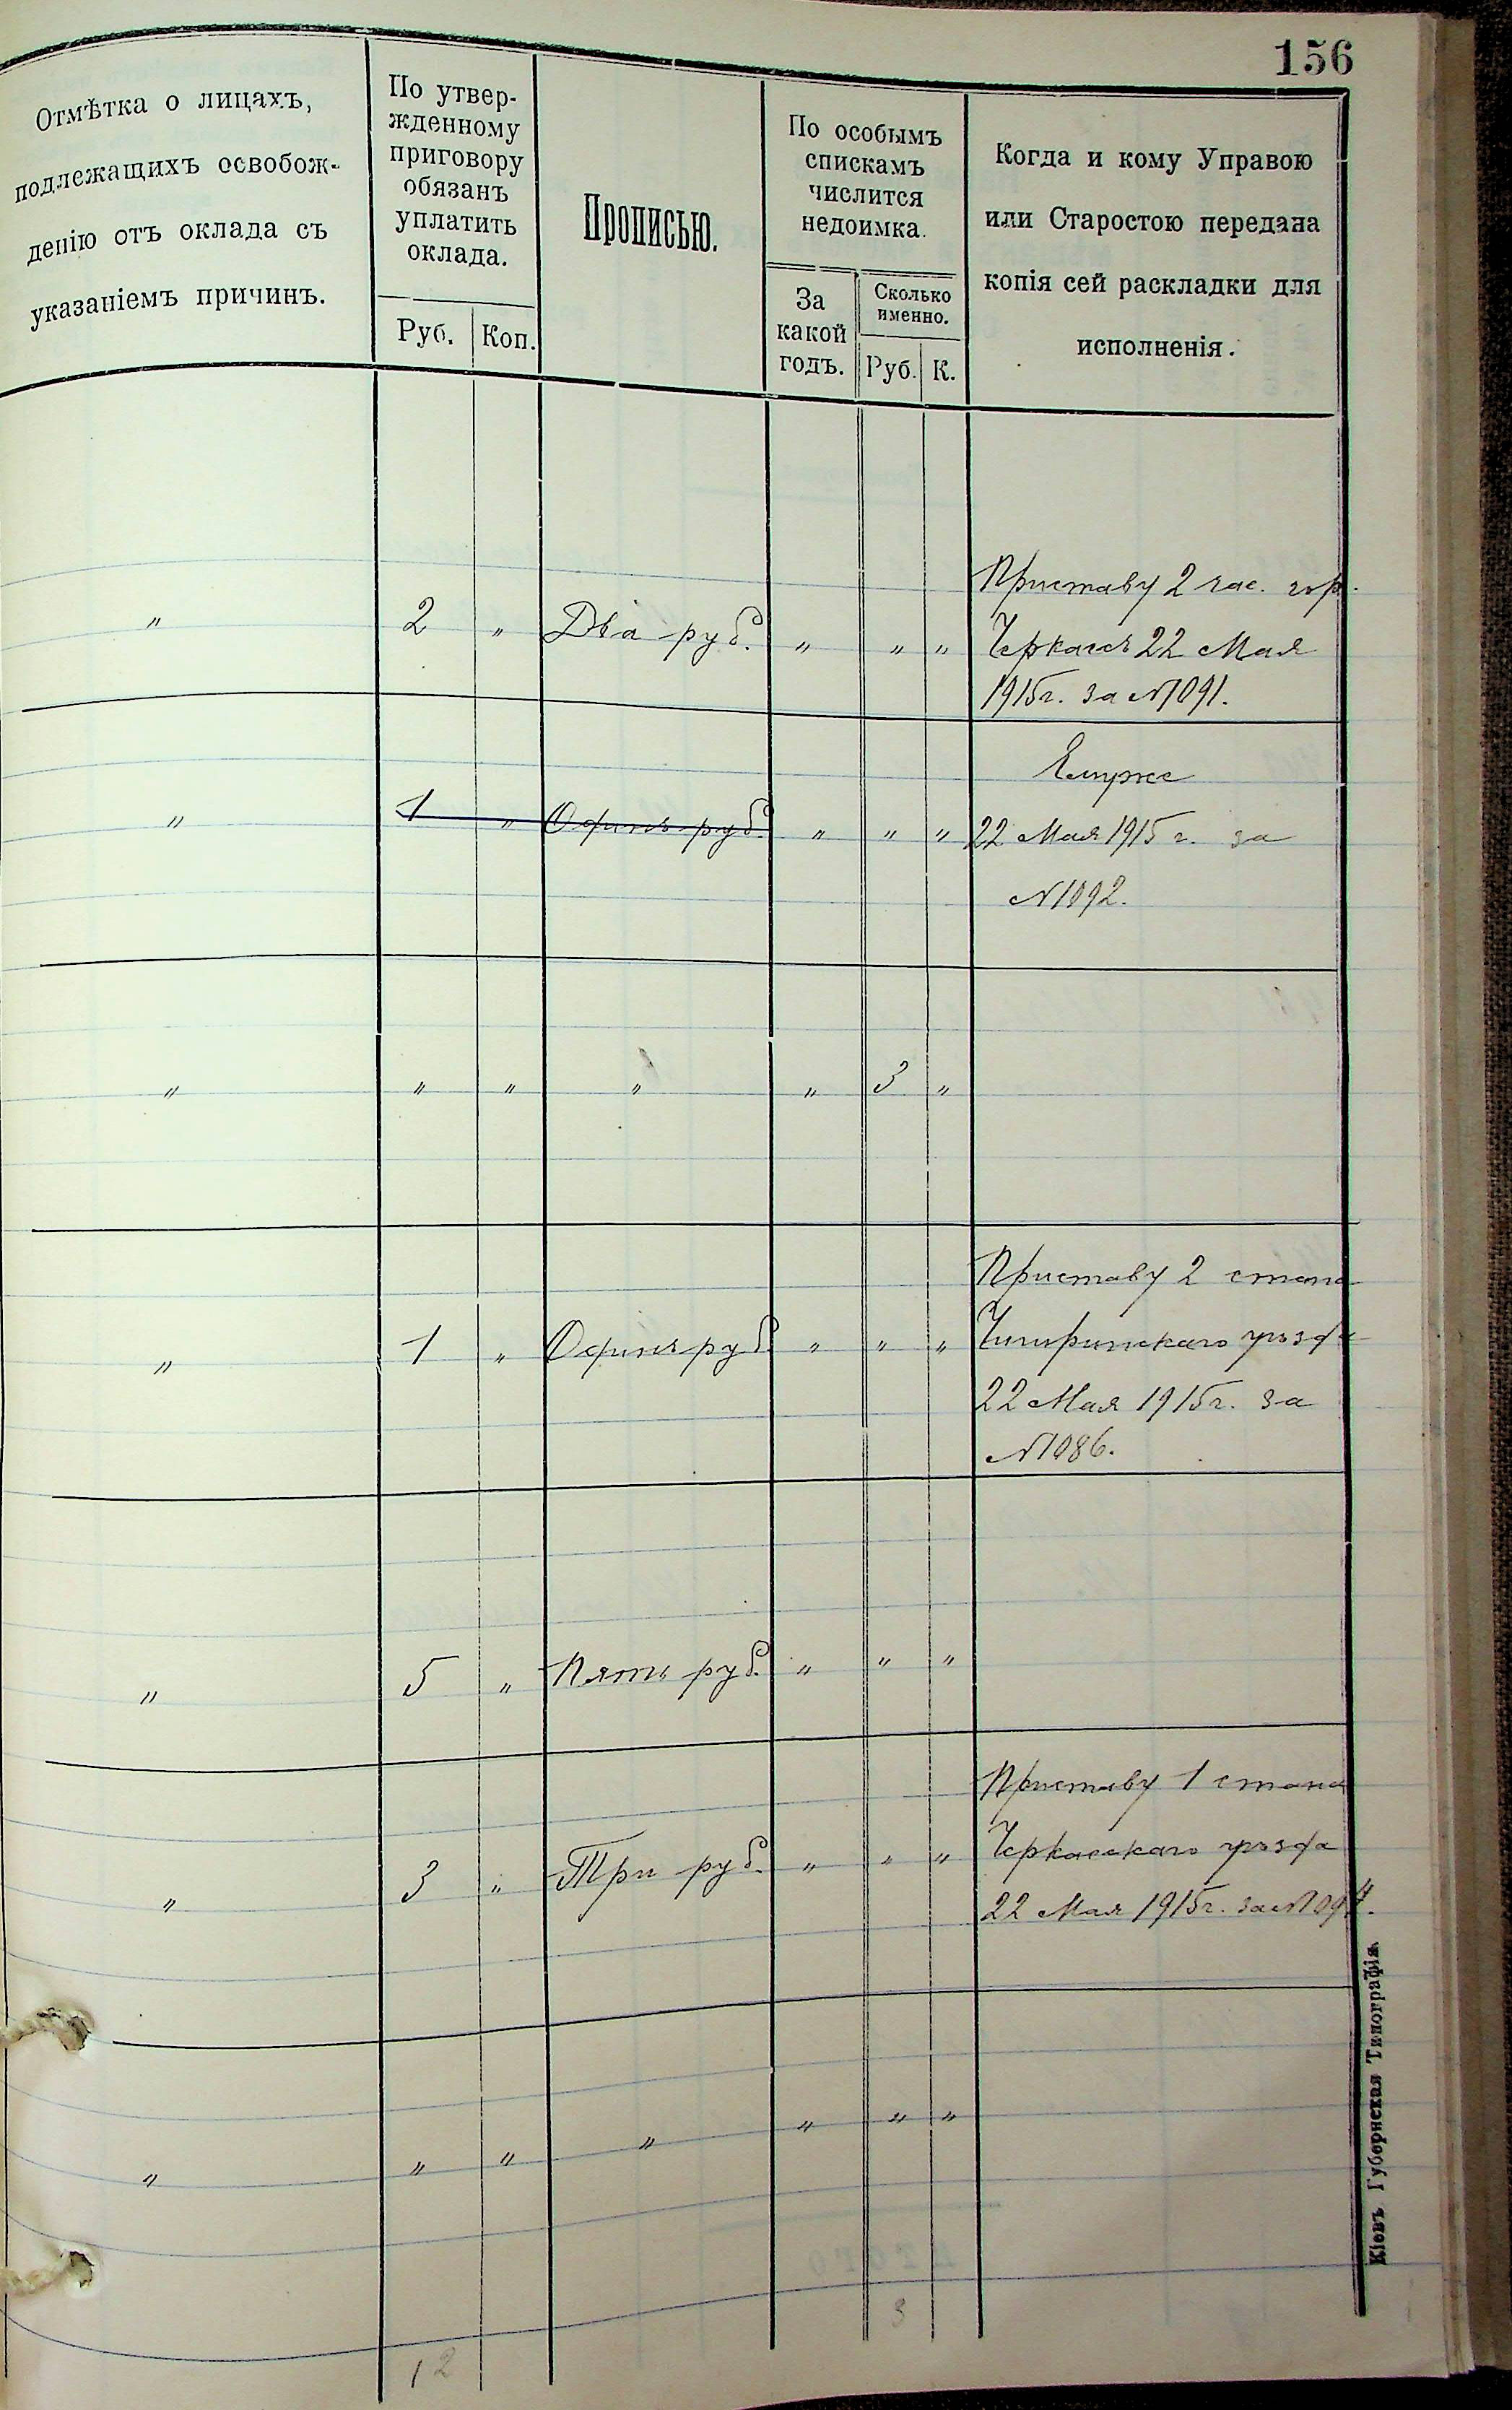 156
Отмѣтка о лицахъ,
подлежащихъ освобож-
денію отъ оклада съ
указаніемъ причинъ.
По утвер-
жденному
приговору
обязанъ
уплатить
оклада.
Руб.
Коп.
Прописью.
По особымъ
спискамъ
числится
недоимка.
За
какой
годъ.
Сколько
именно.
Руб.
К.
Когда и кому Управою
или Старостою передана
копія сей раскладки для
исполненія.
Приставу 2 час. гор.
" 2 " Два руб. " " " Черкассъ 22 Мая
1915г. за №1091.
Ему же
" 1 " Одинъ руб. " " " 22 Мая 1915 г. за
№1092.
" " " " " 3 "
Приставу 2 стана
" 1 " Одинъ руб. " " " Чигиринскаго уѣзда
22 Мая 1915г. за
№1086.
" 5 " Пять руб. " " "
Приставу 1 стана
" 3 " Три руб. " " " Черкасскаго уѣзда
22 Мая 1915г. за №1094.
" " " " " " "
3
12
Кіевъ Губернская Типографія.